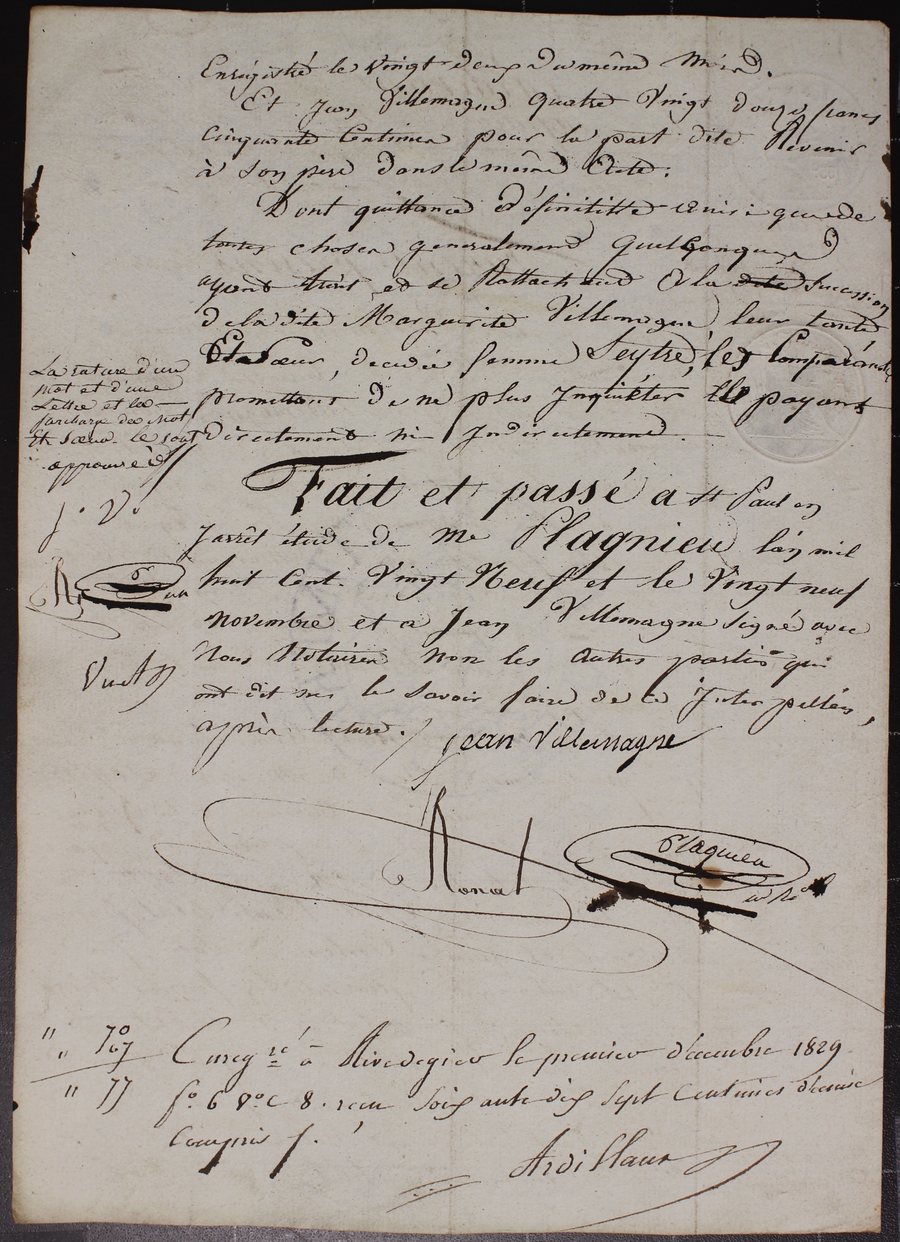 Enregistré le vingt deux du même mois.
Et Jean Villemagne quatre vingt douze francs
cinquante centimes pour la part dite Revenir
à son père dans le même Acte.
Dont quittance définititte ainsi que de
toutes choses generalement quelconques
ayant trait et se Rattachand à la dite succession
de la dite Marguerite Villemagne, leur tante
Et sœur, décédée femme Seytre, les Comparants
promettant de ne plus Inquiéter les payants
directement ni Indirectement.
La rature d'un
mot et d'une
Lettre et la
surcharge des Mot
Et sœur le sont
approuvées
J. V.
Fait et passé a St Paul en
Jarrêt étude de Me Plagnieu l'an mil
huit Cent Vingt Neuf et le Vingt neuf
Novembre et a Jean Villemagne signé avec
Nous Notaires non les autres parties qui
ont dit ne le savoir faire de ce Interpellés,
après lecture.
Jean Villemagne
Ronat
Plagnieu
Enregré à Rivedegier le premier décembre 1829
fo 6 Vo C 8. reçu soixante dix sept centimes décime
compris
Ardillaux
" 70
" 07
" 77